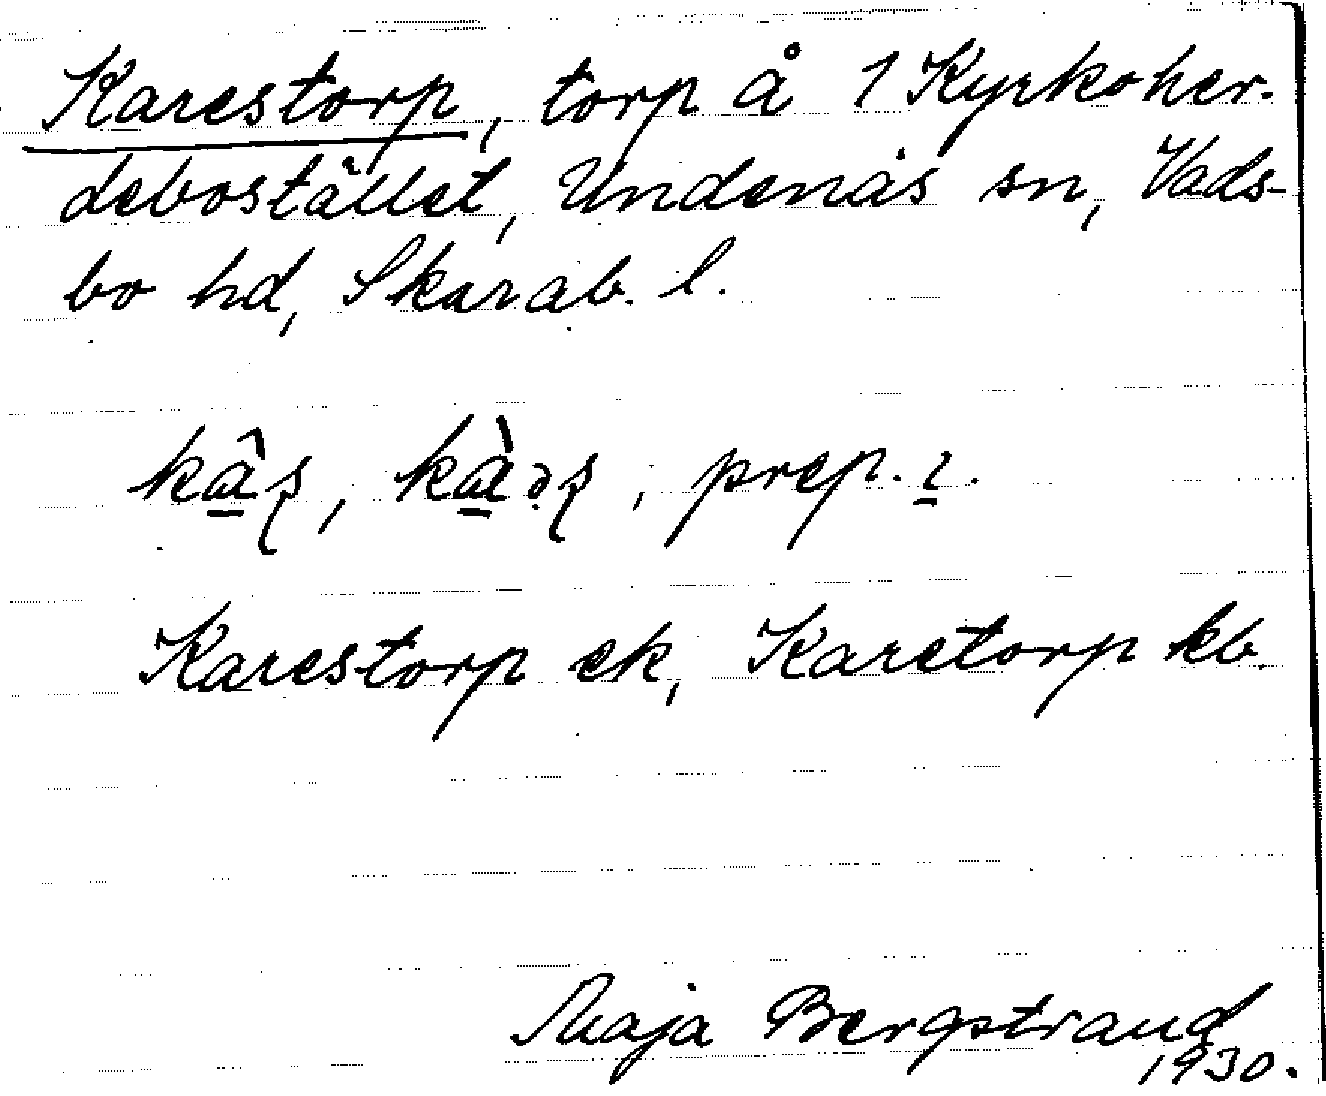 Karestorp, torp å 1 Kyrkoher-
debostället, Undenäs sn, Vads-
bo hd, Skarab. l.
kâʂ, kàəʂ, prep. ɩ.
Karestorp ek, Karetorp kb.
Maja Bergstrand
1930.